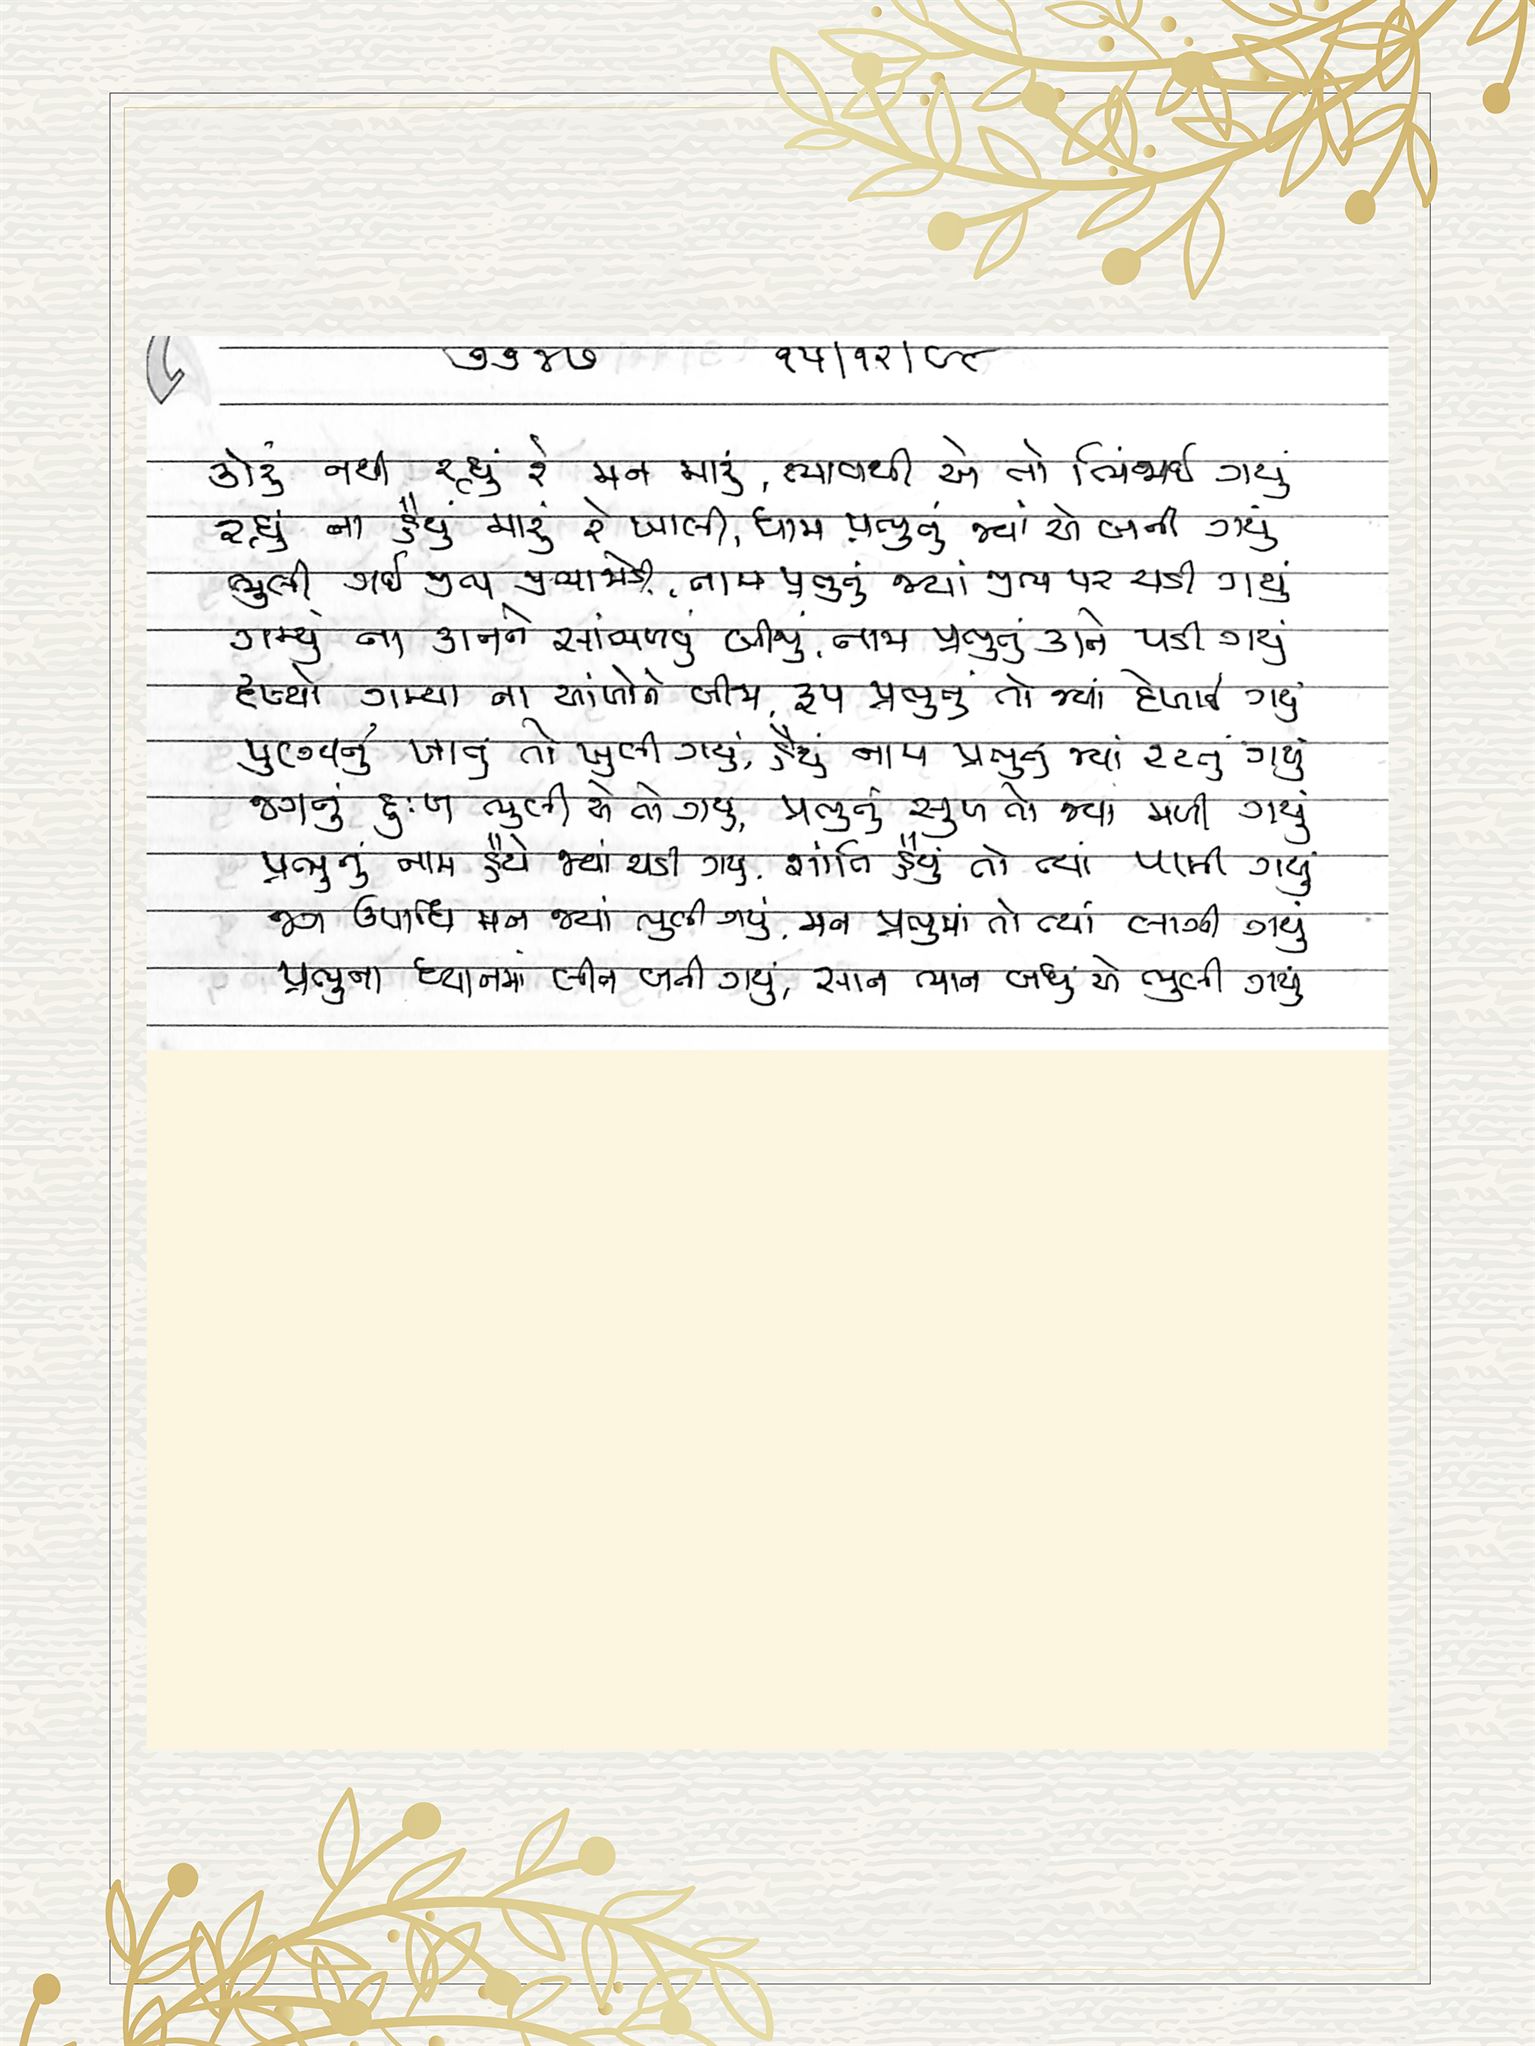 ૭૭૪૭ ૧૫/૧૨/૯૮
કોરું નથી રહ્યું રે મન મારું, ભાવથી એ તો ભિંજાઈ ગયું
રહ્યું ના હૈયું મારું રે ખાલી, ધામ પ્રભુનું જ્યાં એ બની ગયું
ભુલી ગઈ જીભ નામ પ્રભુનું જ્યાં જીભ પર ચડી ગયું
ગમ્યું ના કાનને સાંભળવું બીજું, નામ પ્રભુનું કાને પડી ગયું
દૃશ્યો ગમ્યા ના આંખોને બીજા, રૂપ પ્રભુનું તો જ્યાં દેખાઈ ગયું
પુણ્યનું ખાનું તો ખુલી ગયું, હૈયું નામ પ્રભુનું જ્યાં રટતું ગયું
જગનું દુઃખ ભુલી એ તો ગયું, પ્રભુનું સુખ તો જ્યાં મળી ગયું
પ્રભુનું નામ હૈયે જ્યાં ચડી ગયું, શાંતિ હૈયું તો ત્યાં પામી ગયું
જગ ઉપાધિ મન જ્યાં ભુલી ગયું, મન પ્રભુમાં તો ત્યાં લાગી ગયું
પ્રભુના ધ્યાનમાં લીન બની ગયું, સાન ભાન બધું એ ભુલી ગયું